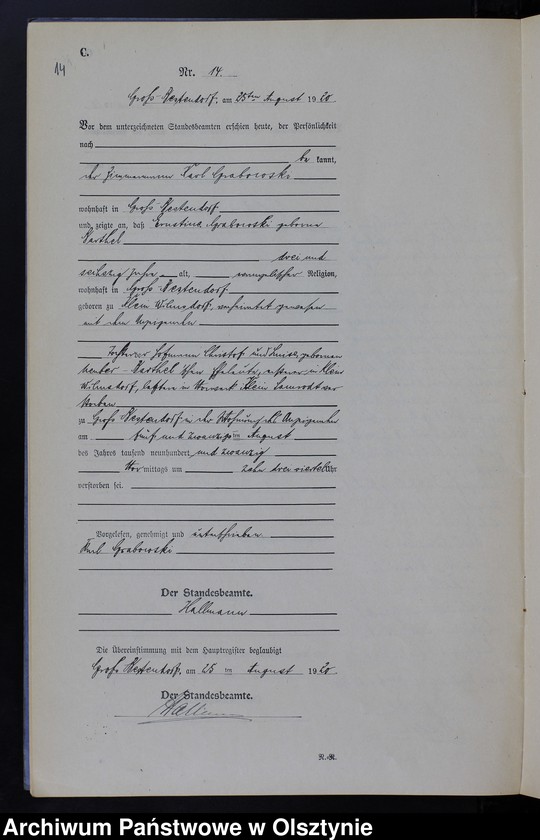 C.
14
Nr. 14.
Groß Hestendorf, am 25ten August 1920
Vor dem unterzeichneten Standesbeamten erschien heute, der Persönlichkeit
nach
be kannt,
der Zimmermann Karl Grabowski
wohnhaft in Groß Hestendorf
und zeigte an, daß Ernstine Grabowski geborene
Barthel
drei und
sechszig Jahre alt, evangelischer Religion,
wohnhaft in Groß Hestendorf
geboren zu Klein Wilmsdorf, verheiratet gewesen
mit dem Anzeigenden
Tochter der Hofmann Christof und Luise, geborenen
Barthel'schen Eheleute, ersterer in Klein
Wilmsdorf, letztere in Vorwerk Klein ver
storben
zu Groß Hestendorf in der Wohnung des Anzeigenden
am fünf und zwanzigsten August
des Jahres tausend neunhundert und zwanzig
Vor mittags um zehn drei viertel Uhr
verstorben sei.
Vorgelesen, genehmigt und unterschrieben
Karl Grabowski
Der Standesbeamte.
Hallmann
Die Übereinstimmung mit dem Hauptregister beglaubigt
Groß Hestendorf, am 25 ten August 1920
Der Standesbeamte.
Hallmann
R.-R.
Archiwum Państwowe w Olsztynie